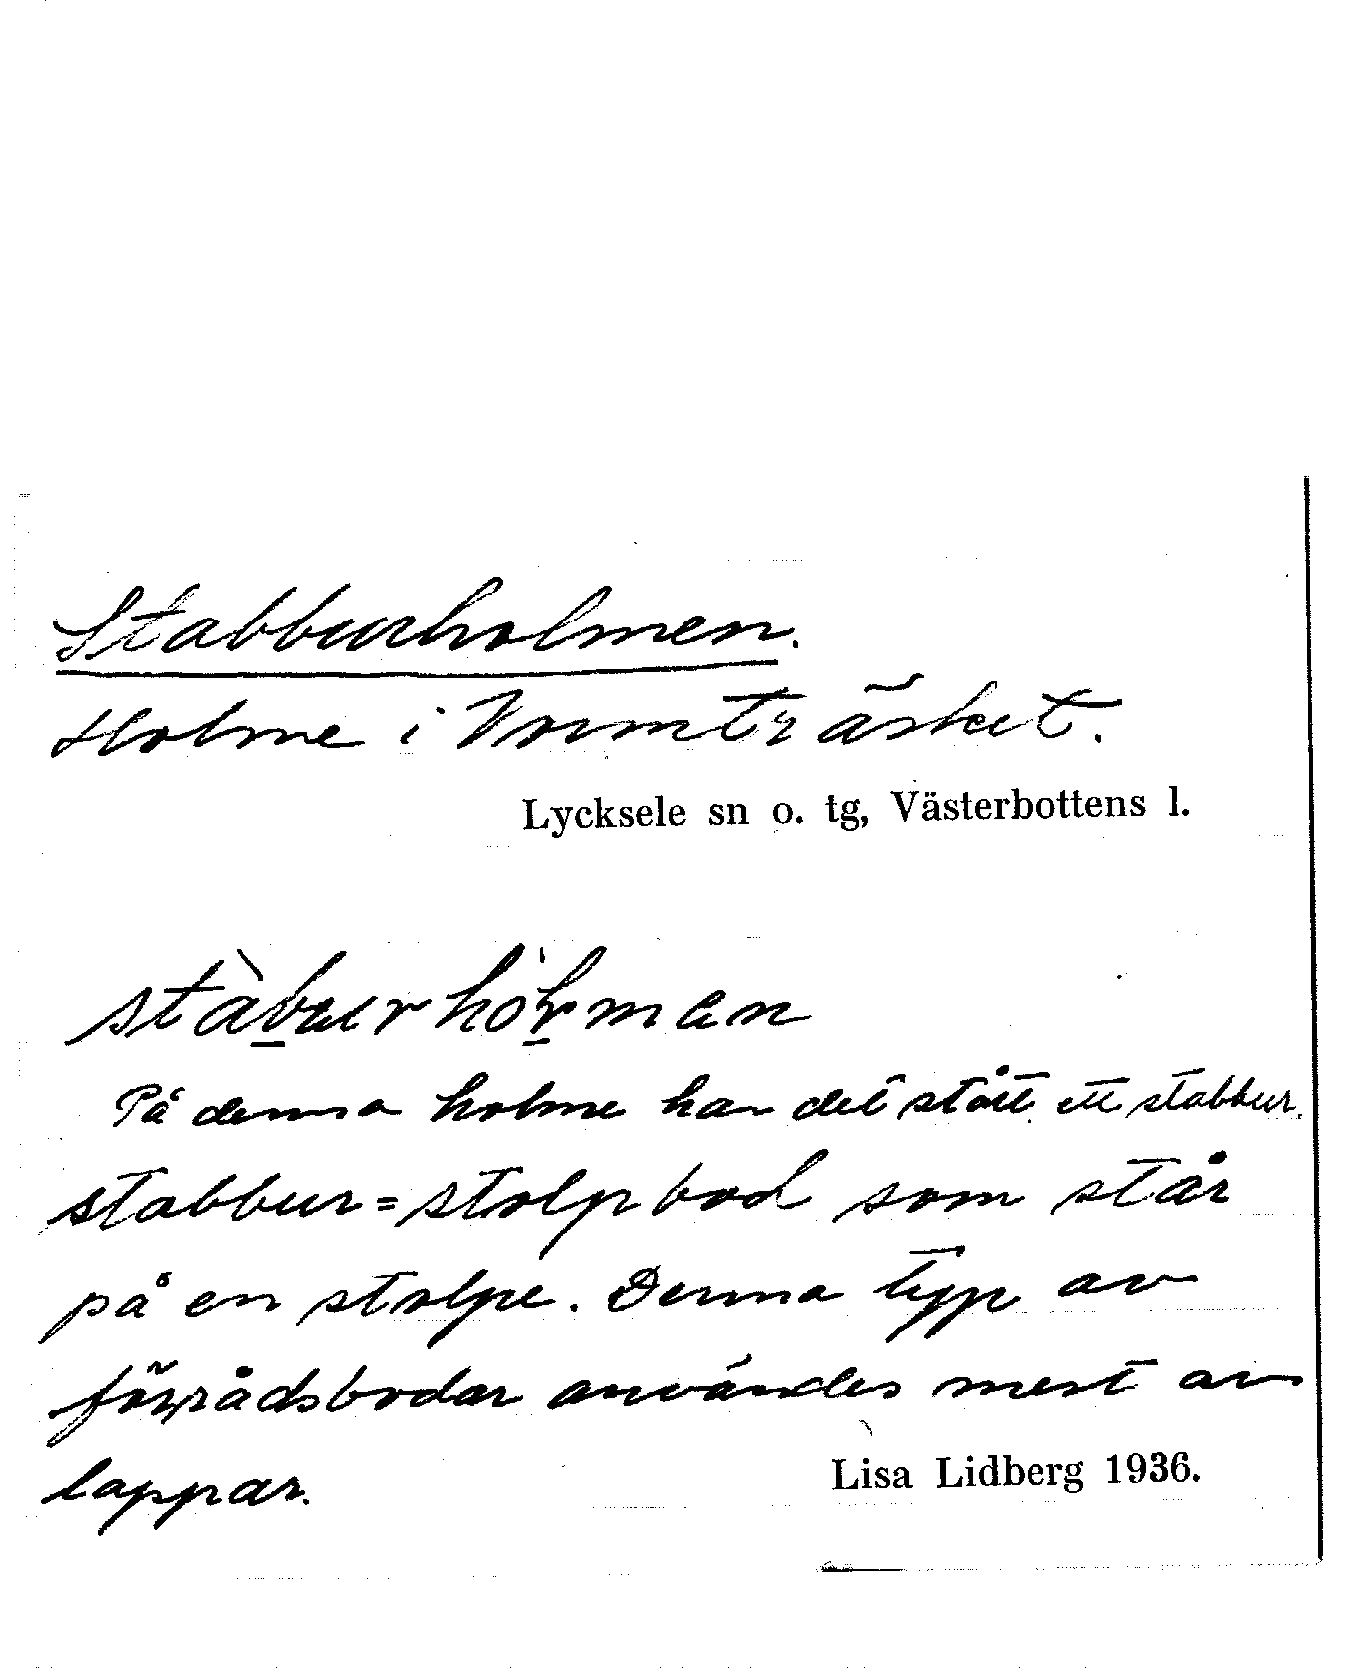 Stabburholmen.
Holme i Vormträsket.
Lycksele sn o. tg, Västerbottens l.
På denna holme har det stått ett stabbur.
stabbur = stolpbod som står
på en stolpe. Denna typ av
förrådsbodar användes mest av
lappar.
Lisa Lidberg 1936.